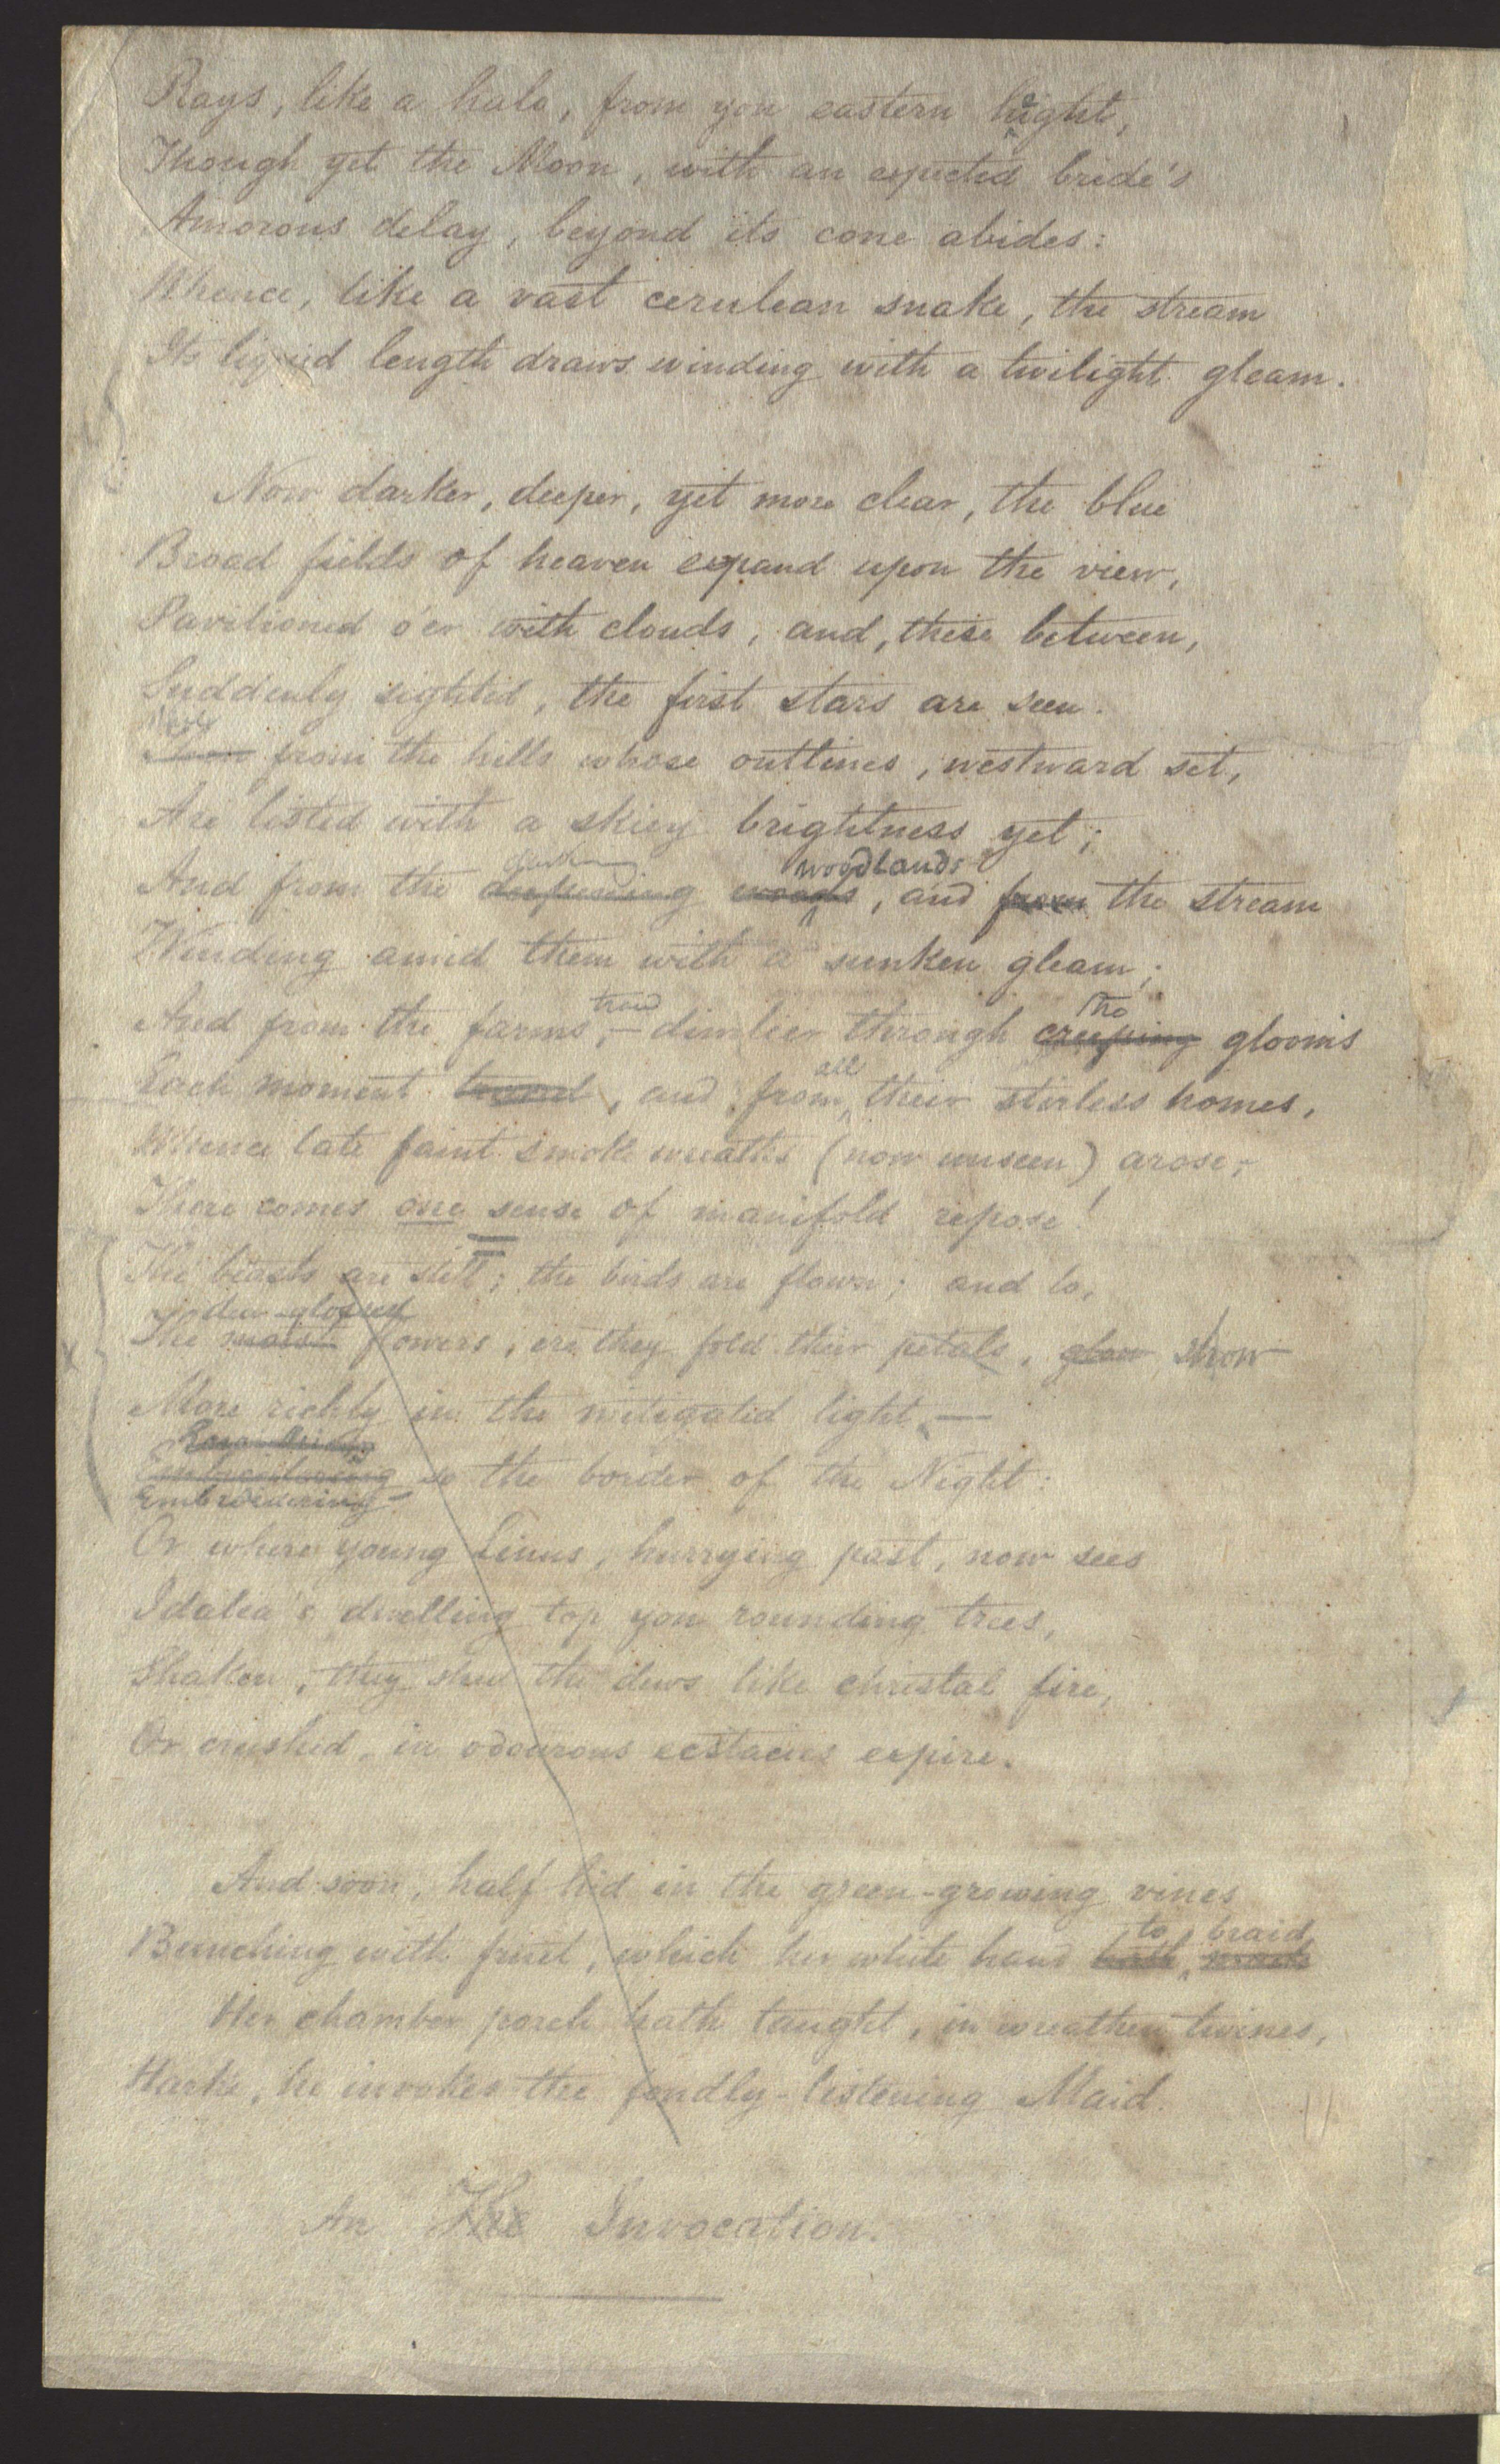 Rays, like a halo, from yon eastern height,
Though yet the Moon, with an expected bride's
Amorous delay, beyond its cone abides:
Whence, like a vast cerulean snake, the stream
Its liquid length draws winding with a twilight gleam.
Now darker, deeper, yet more clear, the blue
Broad fields of heaven expand upon the view,
Pavilioned o'er with clouds, and, these between,
Suddenly sighted, the first stars are seen.
from the hills whose outlines, westward set,
Are listed with a skiey brightness yet;
woodlands
And from the deepening woods, and from the stream
Winding amid them with a sunken gleam;
traced the
And from the farms,— dimlier through creeping glooms
all
Each moment traced, and from their stirless homes,
Whence late faint smoke wreaths (now unseen) arose,—
There comes one sense of manifold repose!
The beasts are still; the birds are flown; and lo,
dew-glossed
The moist flowers, ere they fold their petals, glow show
More richly in the mitigated light,—
Embroidering so the border of the Night:
Embroidering
Or where young Linus, hurrying past, now sees
Idalia's dwelling top yon rounding trees,
Shaken, they shed the dews like christal fire,
Or crushed, in odourous ecstacies expire.
And soon, half hid in the green-growing vines
to braid
Bunching with fruit, which her white hand hath
Her chamber porch hath taught, in wreathen twines,
Harke, he invokes the fondly-listening Maid.
An The Invocation.